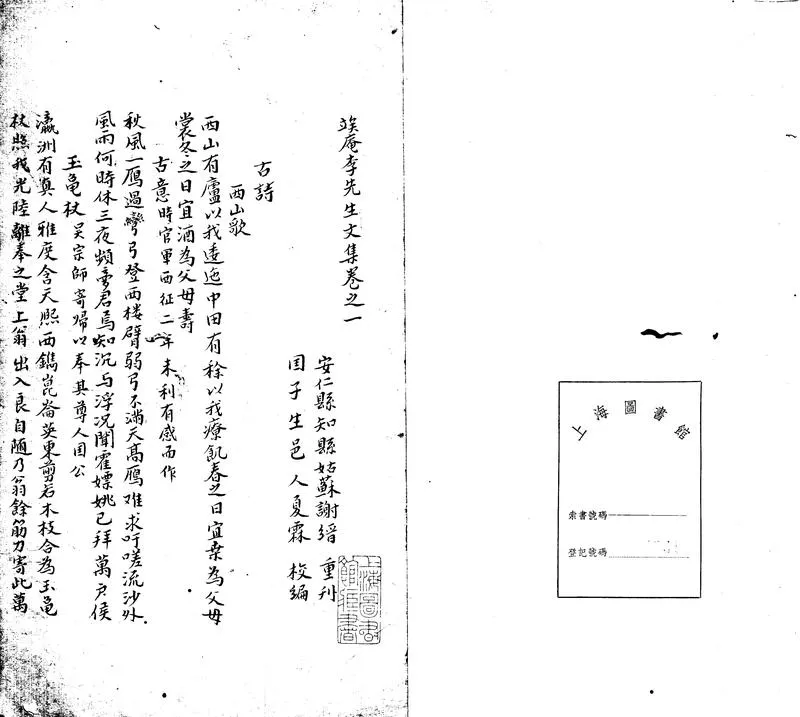 上海圖書館
索書號碼
登記號碼
竢庵李先生文集卷之一
安仁縣知縣姑蘇謝縉 重刊
囯子生邑人夏霖 校編
古詩
西山歌
西山有廬以我逶迤中田有稌以我療飢春之日宜桒為父母
裳冬之日宜酒為父母壽
古意時官軍西征二年未利有感而作
秋風一鴈過彎弓登西楼臂弱弓不滿天高鴈难求吁嗟流沙外
風雨何時休三夜頻夢君焉知沉与浮况聞霍嫖姚已拜萬户侯
玉龜杖吴宗師寄帰以奉其尊人囯公
瀛洲有真人雅度含天熈西鐫崑崙英東剪若木枝合為玉龜
杖照我光陸離奉之堂上翁出入良自随乃翁餘筋力寄此萬
上海圖書館藏書